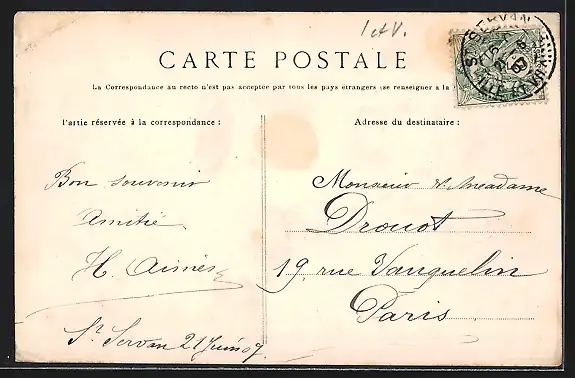 I et V.
CARTE POSTALE
La Correspondance au recto n'est pas acceptée par tous les pays étrangers (se renseigner à la
Partie réservée à la correspondance :
Adresse du destinataire :
Bon souvenir
Amitié
H. Aimès
St Servan 21 Juin 07
Monsieur et Meadame
Drouot
19, rue Vauquelin
Paris
ST SERVAN
ILLE ET VILAINE